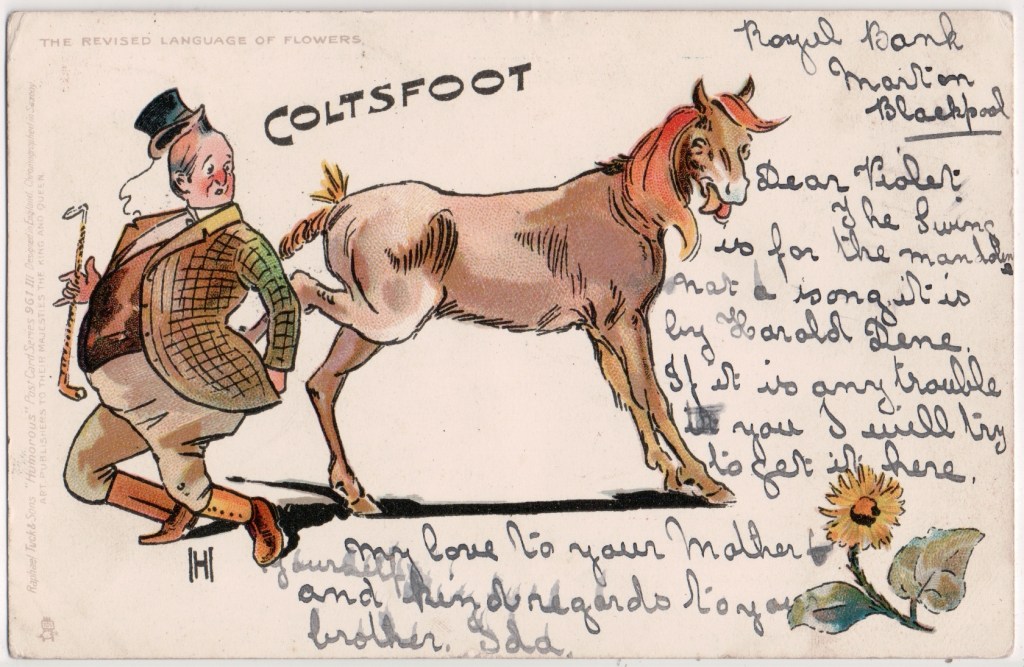 THE REVISED LANGUAGE OF FLOWERS.
COLTSFOOT
Royal Bank
Marton
Blackpool
Dear Violet
The Swing
is for the mandoline
not a song, it is
by Harold Dene.
If it is any trouble
you I will try
to get it here.
my love to your Mother &
yourself
and kind regards to your
brother. Ida.
H
Raphael Tuck & Sons "Humorous" Post Card Series 961
ART PUBLISHERS TO THEIR MAJESTIES THE KING AND QUEEN.